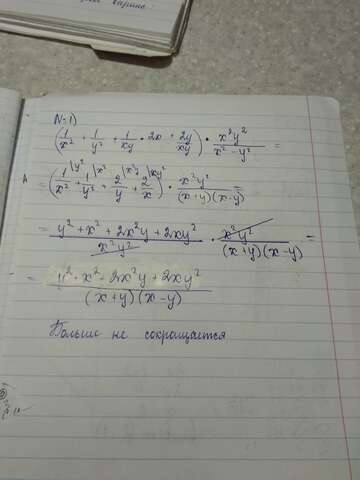 №1)
(1/x² + 1/y² + 1/xy · 2x + 2y/xy) · x²y²/x² - y² =
= (1/x² |y² + 1/y² |x² + 2/y |x²y + 2/x |xy²) · x²y²/(x+y)(x-y) =
= y² + x² + 2x²y + 2xy²/x²y² · x²y²/(x+y)(x-y) =
= y² + x² + 2x²y + 2xy²/(x+y)(x-y)
Больше не сокращается